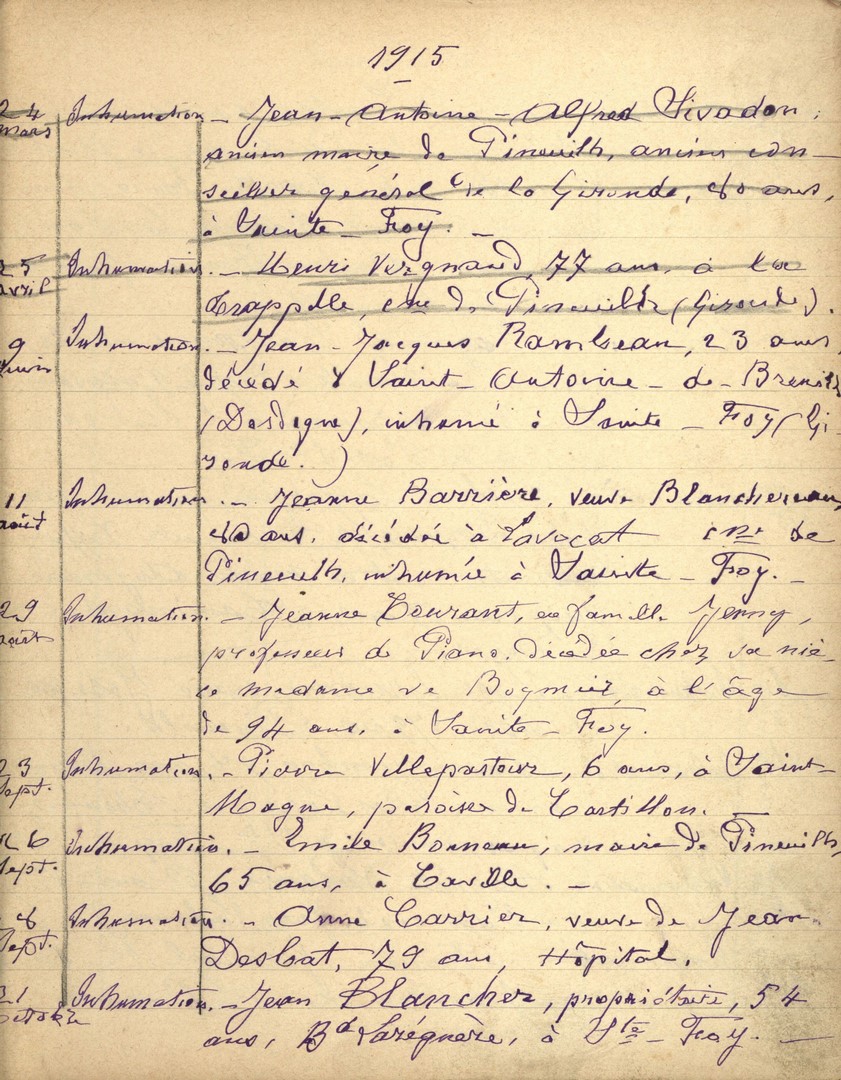 1915
24 Inhumation – Jean-Antoine-Alfred Sivadon,
mars ancien maire de Pineuilh, ancien con-
seiller général de la Gironde, 80 ans,
à Sainte-Foy. –
25 Inhumation. – Henri Vergnaud, 77 ans, à la
avril Trappelle, cne de Pineuilh (Gironde).
9 Inhumation. – Jean-Jacques Rambeau, 23 ans,
juin décédé à Saint-Antoine-de-Breuilh
(Dordogne), inhumé à Sainte-Foy (Gi-
ronde.)
11 Inhumation. – Jeanne Barrière, veuve Blanchereau,
août 80 ans, décédée à Lavocat cne de
Pineuilh, inhumée à Sainte-Foy. –
29 Inhumation. – Jeanne Tourant, en famille Jenny,
août professeur de Piano, décédée chez sa niè-
ce madame de à l'âge
de 94 ans, à Sainte-Foy.
23 Inhumation. – Pierre Villepastour, 6 ans, à Saint-
Sept. Magne, paroisse de Castillon.
26 Inhumation. – Emile Bonneau, maire de Pineuilh,
Sept. 65 ans, à –
8 Inhumation. – Anne Carrier, veuve de Jean
Sept. Desbat, 79 ans, Hôpital.
21 Inhumation. – Jean Blancher, propriétaire, 54
octobre ans, Bd Larégnère, à Ste-Foy. –